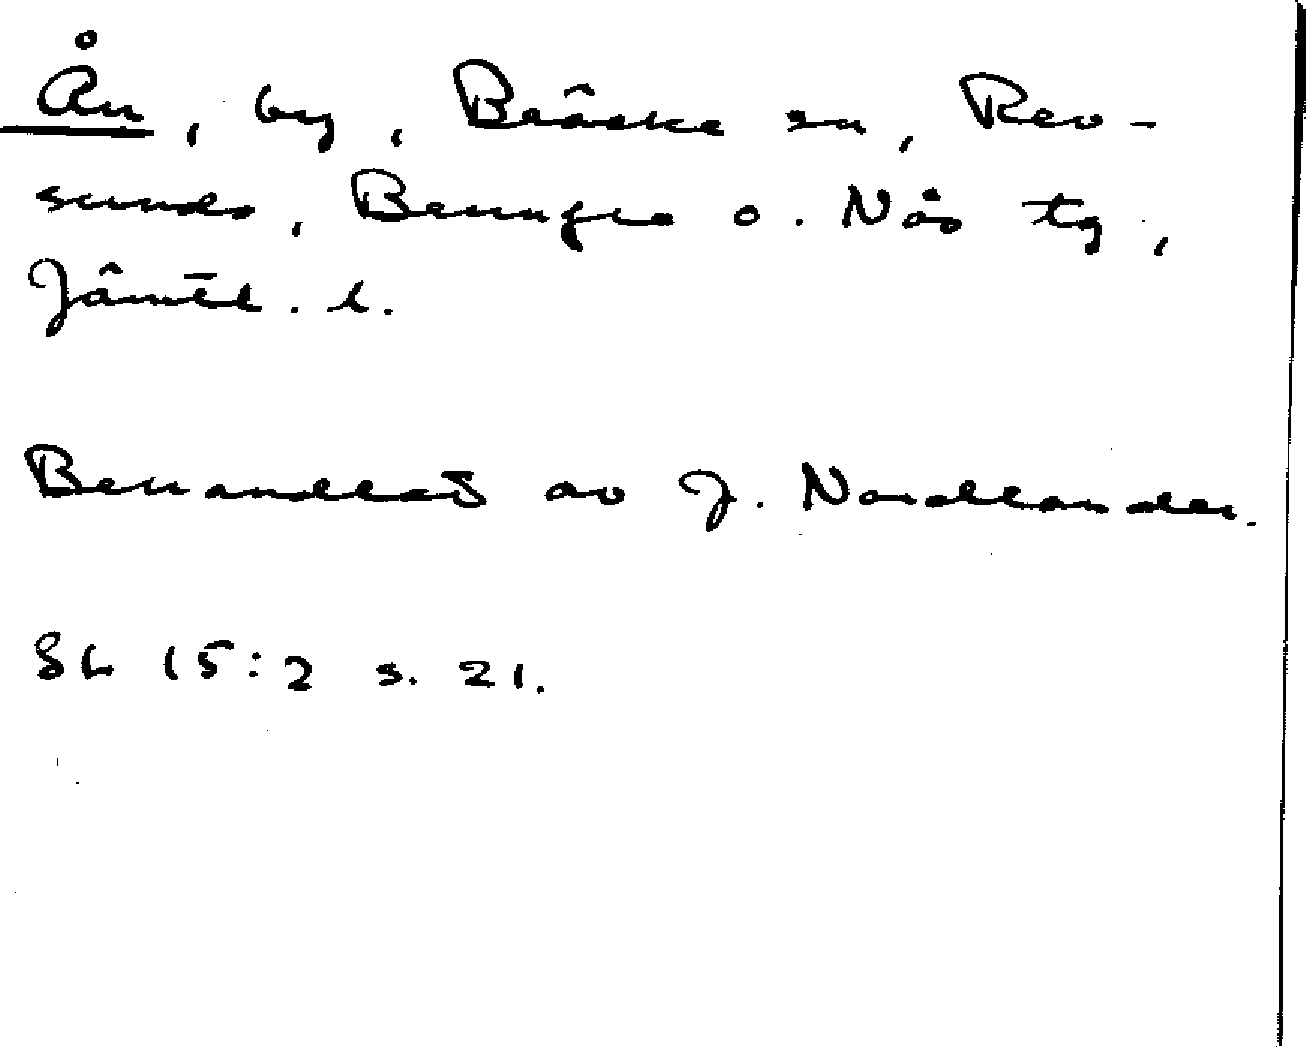 Ån, by, Bräcke sn, Rev-
sunds, Brunflo o. Näs tg,
Jämtl. l.
Behandlat av J. Nordlander.
SL 15:2 s. 21.